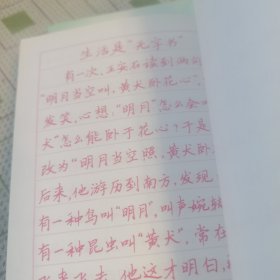 生活是“无字书”
有一次，王安石读到两句
“明月当空叫，黄犬卧花心”，
发笑，心想：“明月”怎么会
犬”怎么能卧于花心？于是
改为“明月当空照，黄犬卧
后来，他游历到南方，发现
有一种鸟叫“明月”，叫声婉转
有一种昆虫叫“黄犬”，常在
他这才明白，